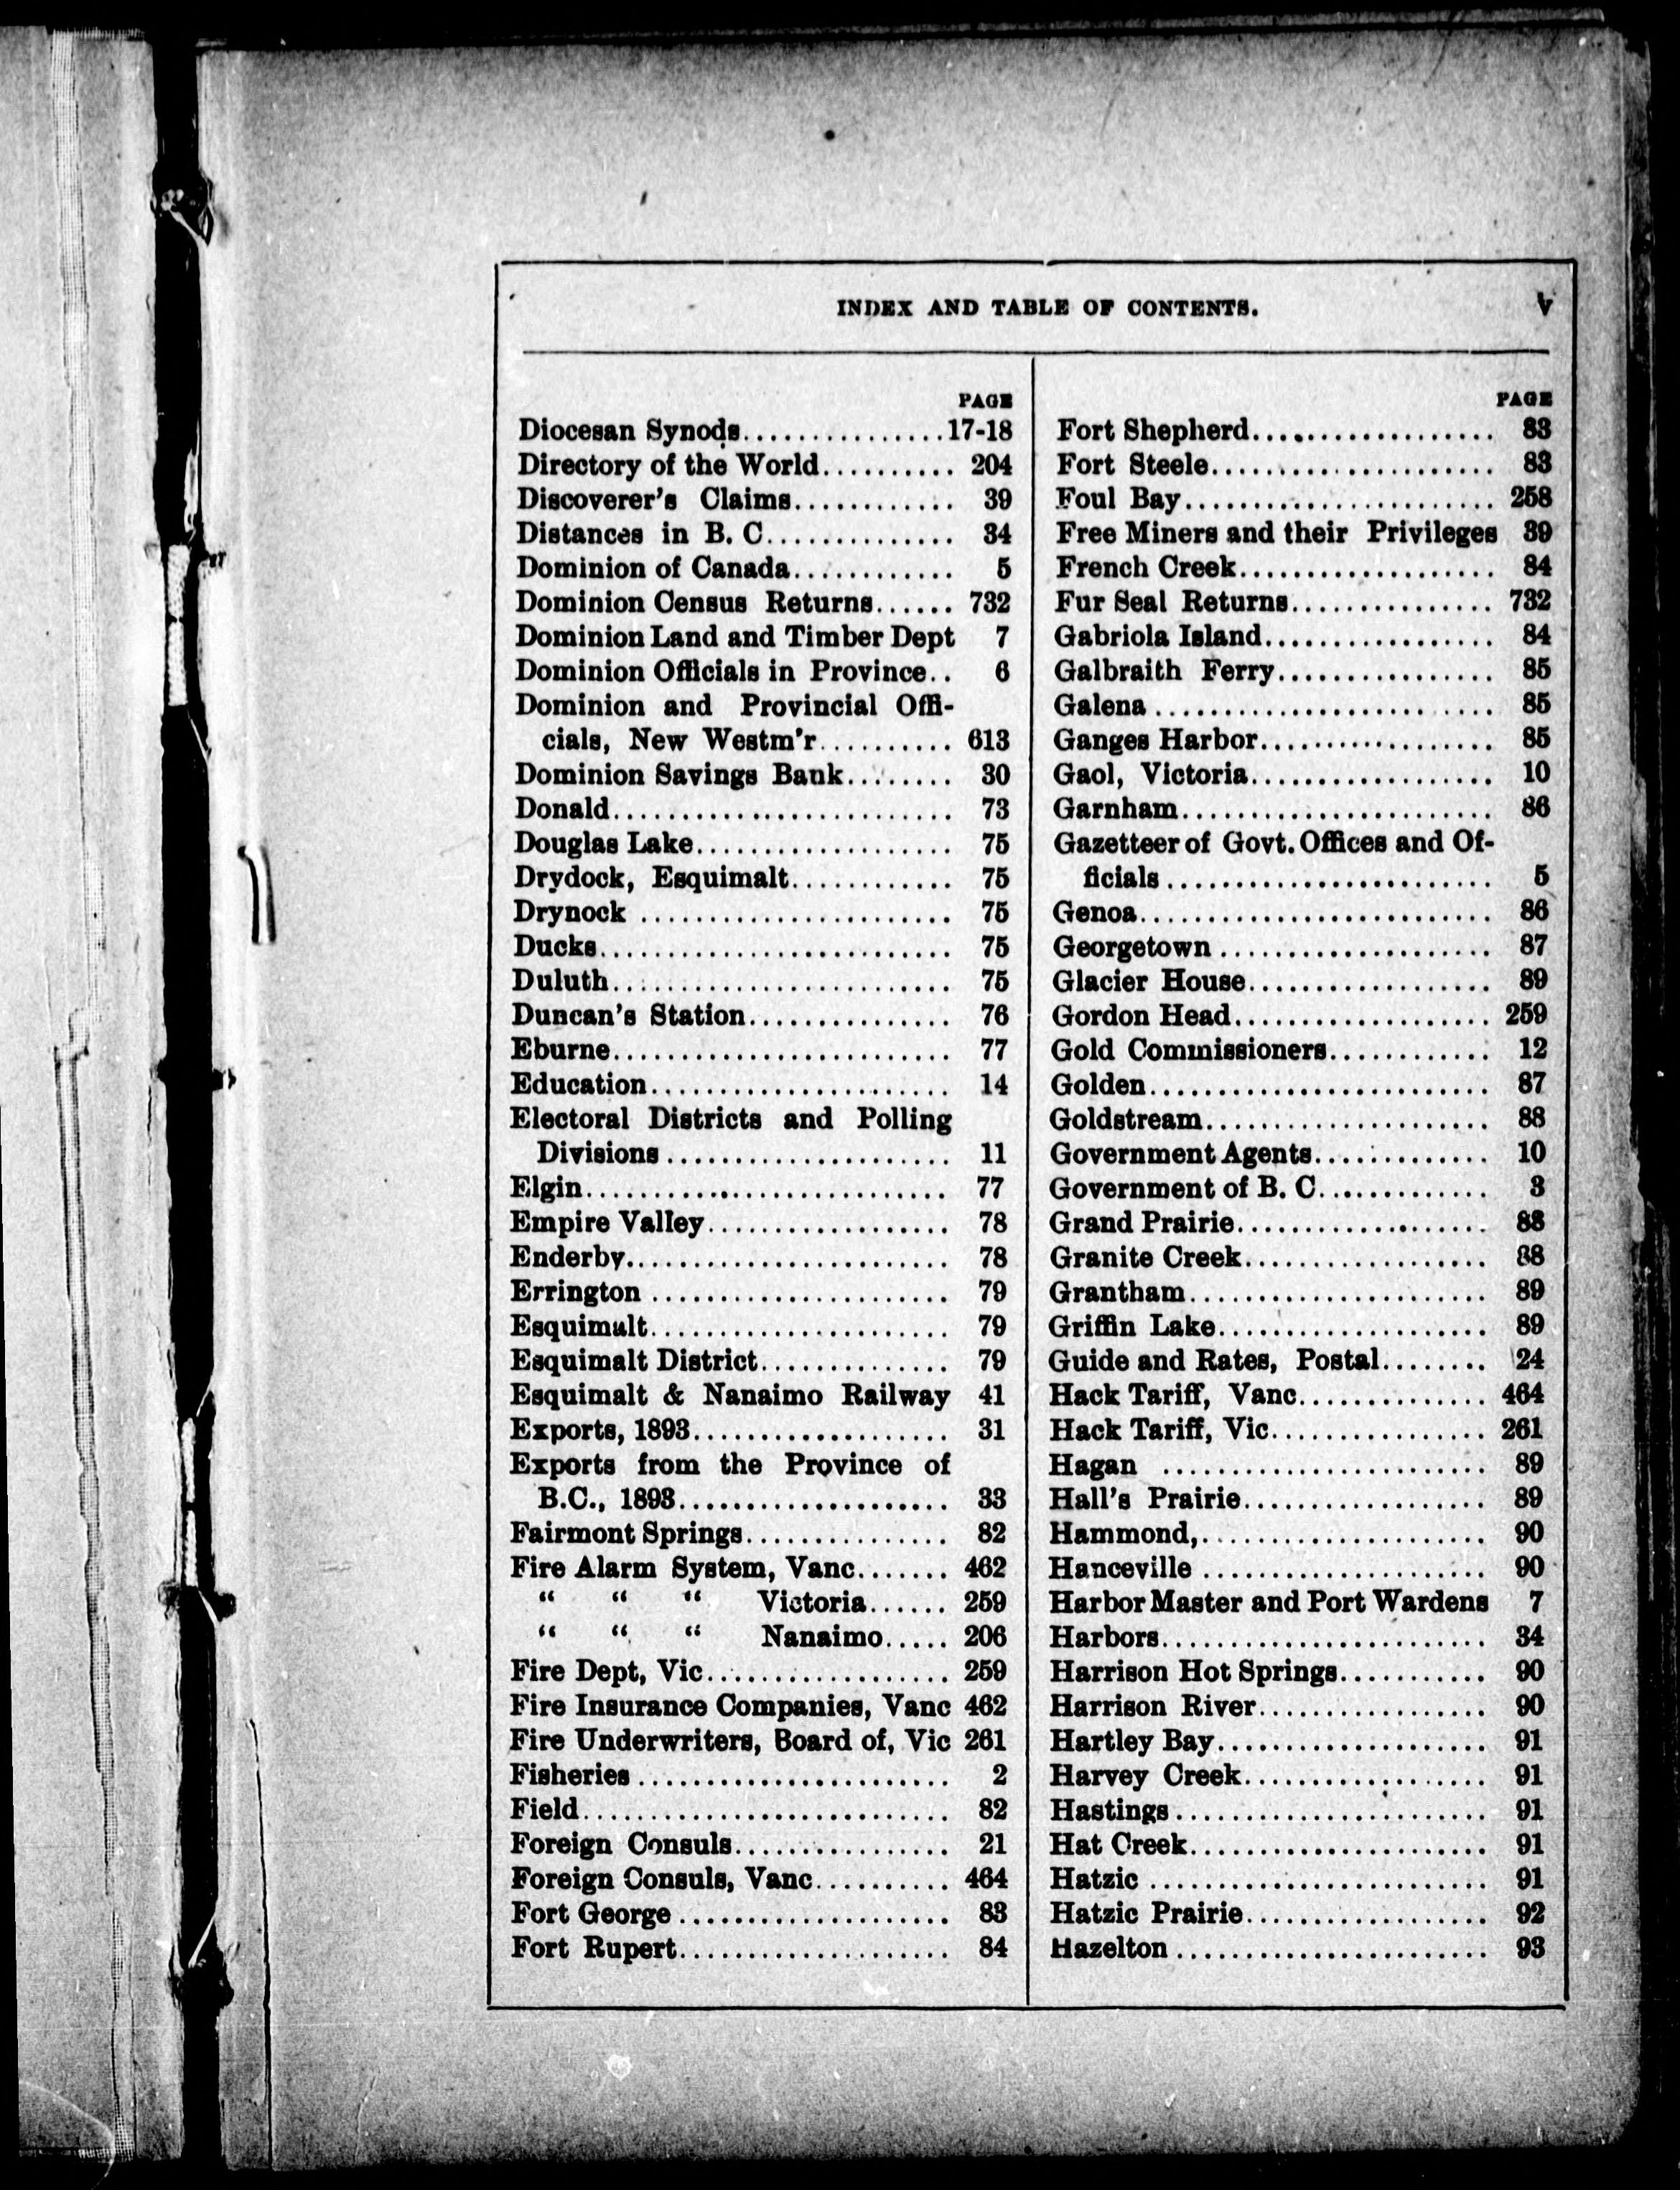 INDEX AND TABLE OF CONTENTS. v
PAGE
Diocesan Synods................17-18
Directory of the World.......... 204
Discoverer's Claims............ 39
Distances in B. C.............. 34
Dominion of Canada............ 5
Dominion Census Returns...... 732
Dominion Land and Timber Dept 7
Dominion Officials in Province.. 6
Dominion and Provincial Offi-
cials, New Westm'r.......... 613
Dominion Savings Bank........ 30
Donald......................... 73
Douglas Lake................... 75
Drydock, Esquimalt............ 75
Drynock ....................... 75
Ducks.......................... 75
Duluth......................... 75
Duncan's Station............... 76
Eburne......................... 77
Education...................... 14
Electoral Districts and Polling
Divisions ..................... 11
Elgin........................... 77
Empire Valley.................. 78
Enderby........................ 78
Errington ...................... 79
Esquimalt...................... 79
Esquimalt District.............. 79
Esquimalt & Nanaimo Railway 41
Exports, 1893................... 31
Exports from the Province of
B.C., 1893.................... 33
Fairmont Springs............... 82
Fire Alarm System, Vanc....... 462
“ “ “ Victoria...... 259
“ “ “ Nanaimo..... 206
Fire Dept, Vic.................. 259
Fire Insurance Companies, Vanc 462
Fire Underwriters, Board of, Vic 261
Fisheries ....................... 2
Field........................... 82
Foreign Consuls................ 21
Foreign Consuls, Vanc.......... 464
Fort George .................... 83
Fort Rupert.................... 84
PAGE
Fort Shepherd.................. 83
Fort Steele..................... 83
Foul Bay....................... 258
Free Miners and their Privileges 39
French Creek................... 84
Fur Seal Returns............... 732
Gabriola Island................. 84
Galbraith Ferry................ 85
Galena ......................... 85
Ganges Harbor.................. 85
Gaol, Victoria.................. 10
Garnham....................... 86
Gazetteer of Govt. Offices and Of-
ficials........................ 5
Genoa.......................... 86
Georgetown .................... 87
Glacier House.................. 89
Gordon Head................... 259
Gold Commissioners............ 12
Golden......................... 87
Goldstream..................... 88
Government Agents............. 10
Government of B. C............. 3
Grand Prairie................... 88
Granite Creek.................. 88
Grantham...................... 89
Griffin Lake.................... 89
Guide and Rates, Postal........ 24
Hack Tariff, Vanc.............. 464
Hack Tariff, Vic................ 261
Hagan ........................ 89
Hall's Prairie.................. 89
Hammond,..................... 90
Hanceville ..................... 90
Harbor Master and Port Wardens 7
Harbors........................ 34
Harrison Hot Springs........... 90
Harrison River................. 90
Hartley Bay.................... 91
Harvey Creek.................. 91
Hastings....................... 91
Hat Creek...................... 91
Hatzic ......................... 91
Hatzic Prairie.................. 92
Hazelton ....................... 93